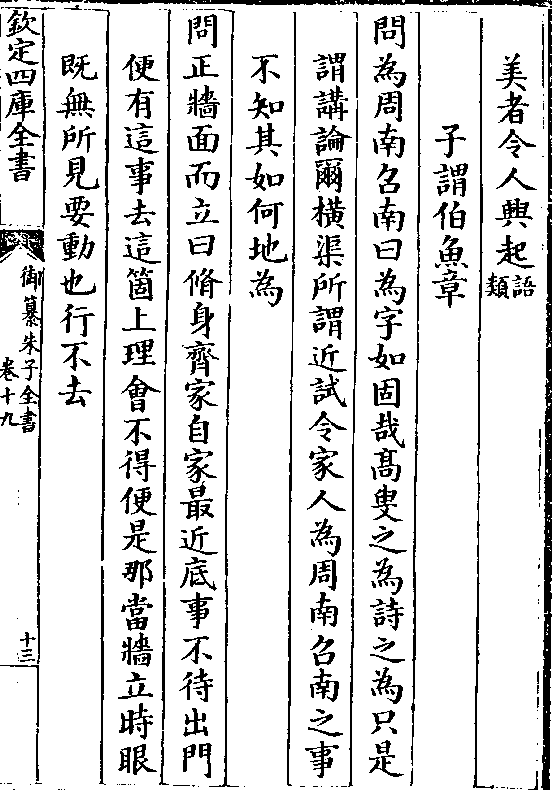 美者令人興起語類
子謂伯魚章
問為周南召南曰為字如固哉高叟之為詩之為只是
謂講論爾橫渠所謂近試令家人為周南召南之事
不知其如何地為
問正牆面而立曰脩身齊家自家最近底事不待出門
便有這事去這箇上理會不得便是那當牆立時眼
既無所見要動也行不去
欽定四庫全書
御纂朱子全書
卷十九
十三